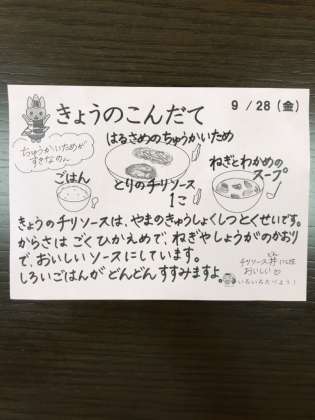 きょうのこんだて
9/28(金)
ちゅうかいためが
すきなのん
はるさめのちゅうかいため
ごはん
とりのチリソース
1こ
ねぎとわかめの
スープ
きょうのチリソースは、やまのきゅうしょくしつとくせいです。
からさは ごくひかえめで、ねぎやしょうがのかおり
で、おいしいソースにしています。
しろいごはんが どんどん すすみますよ。
チリソース丼にしても
おいしい
いろいろたべよう!